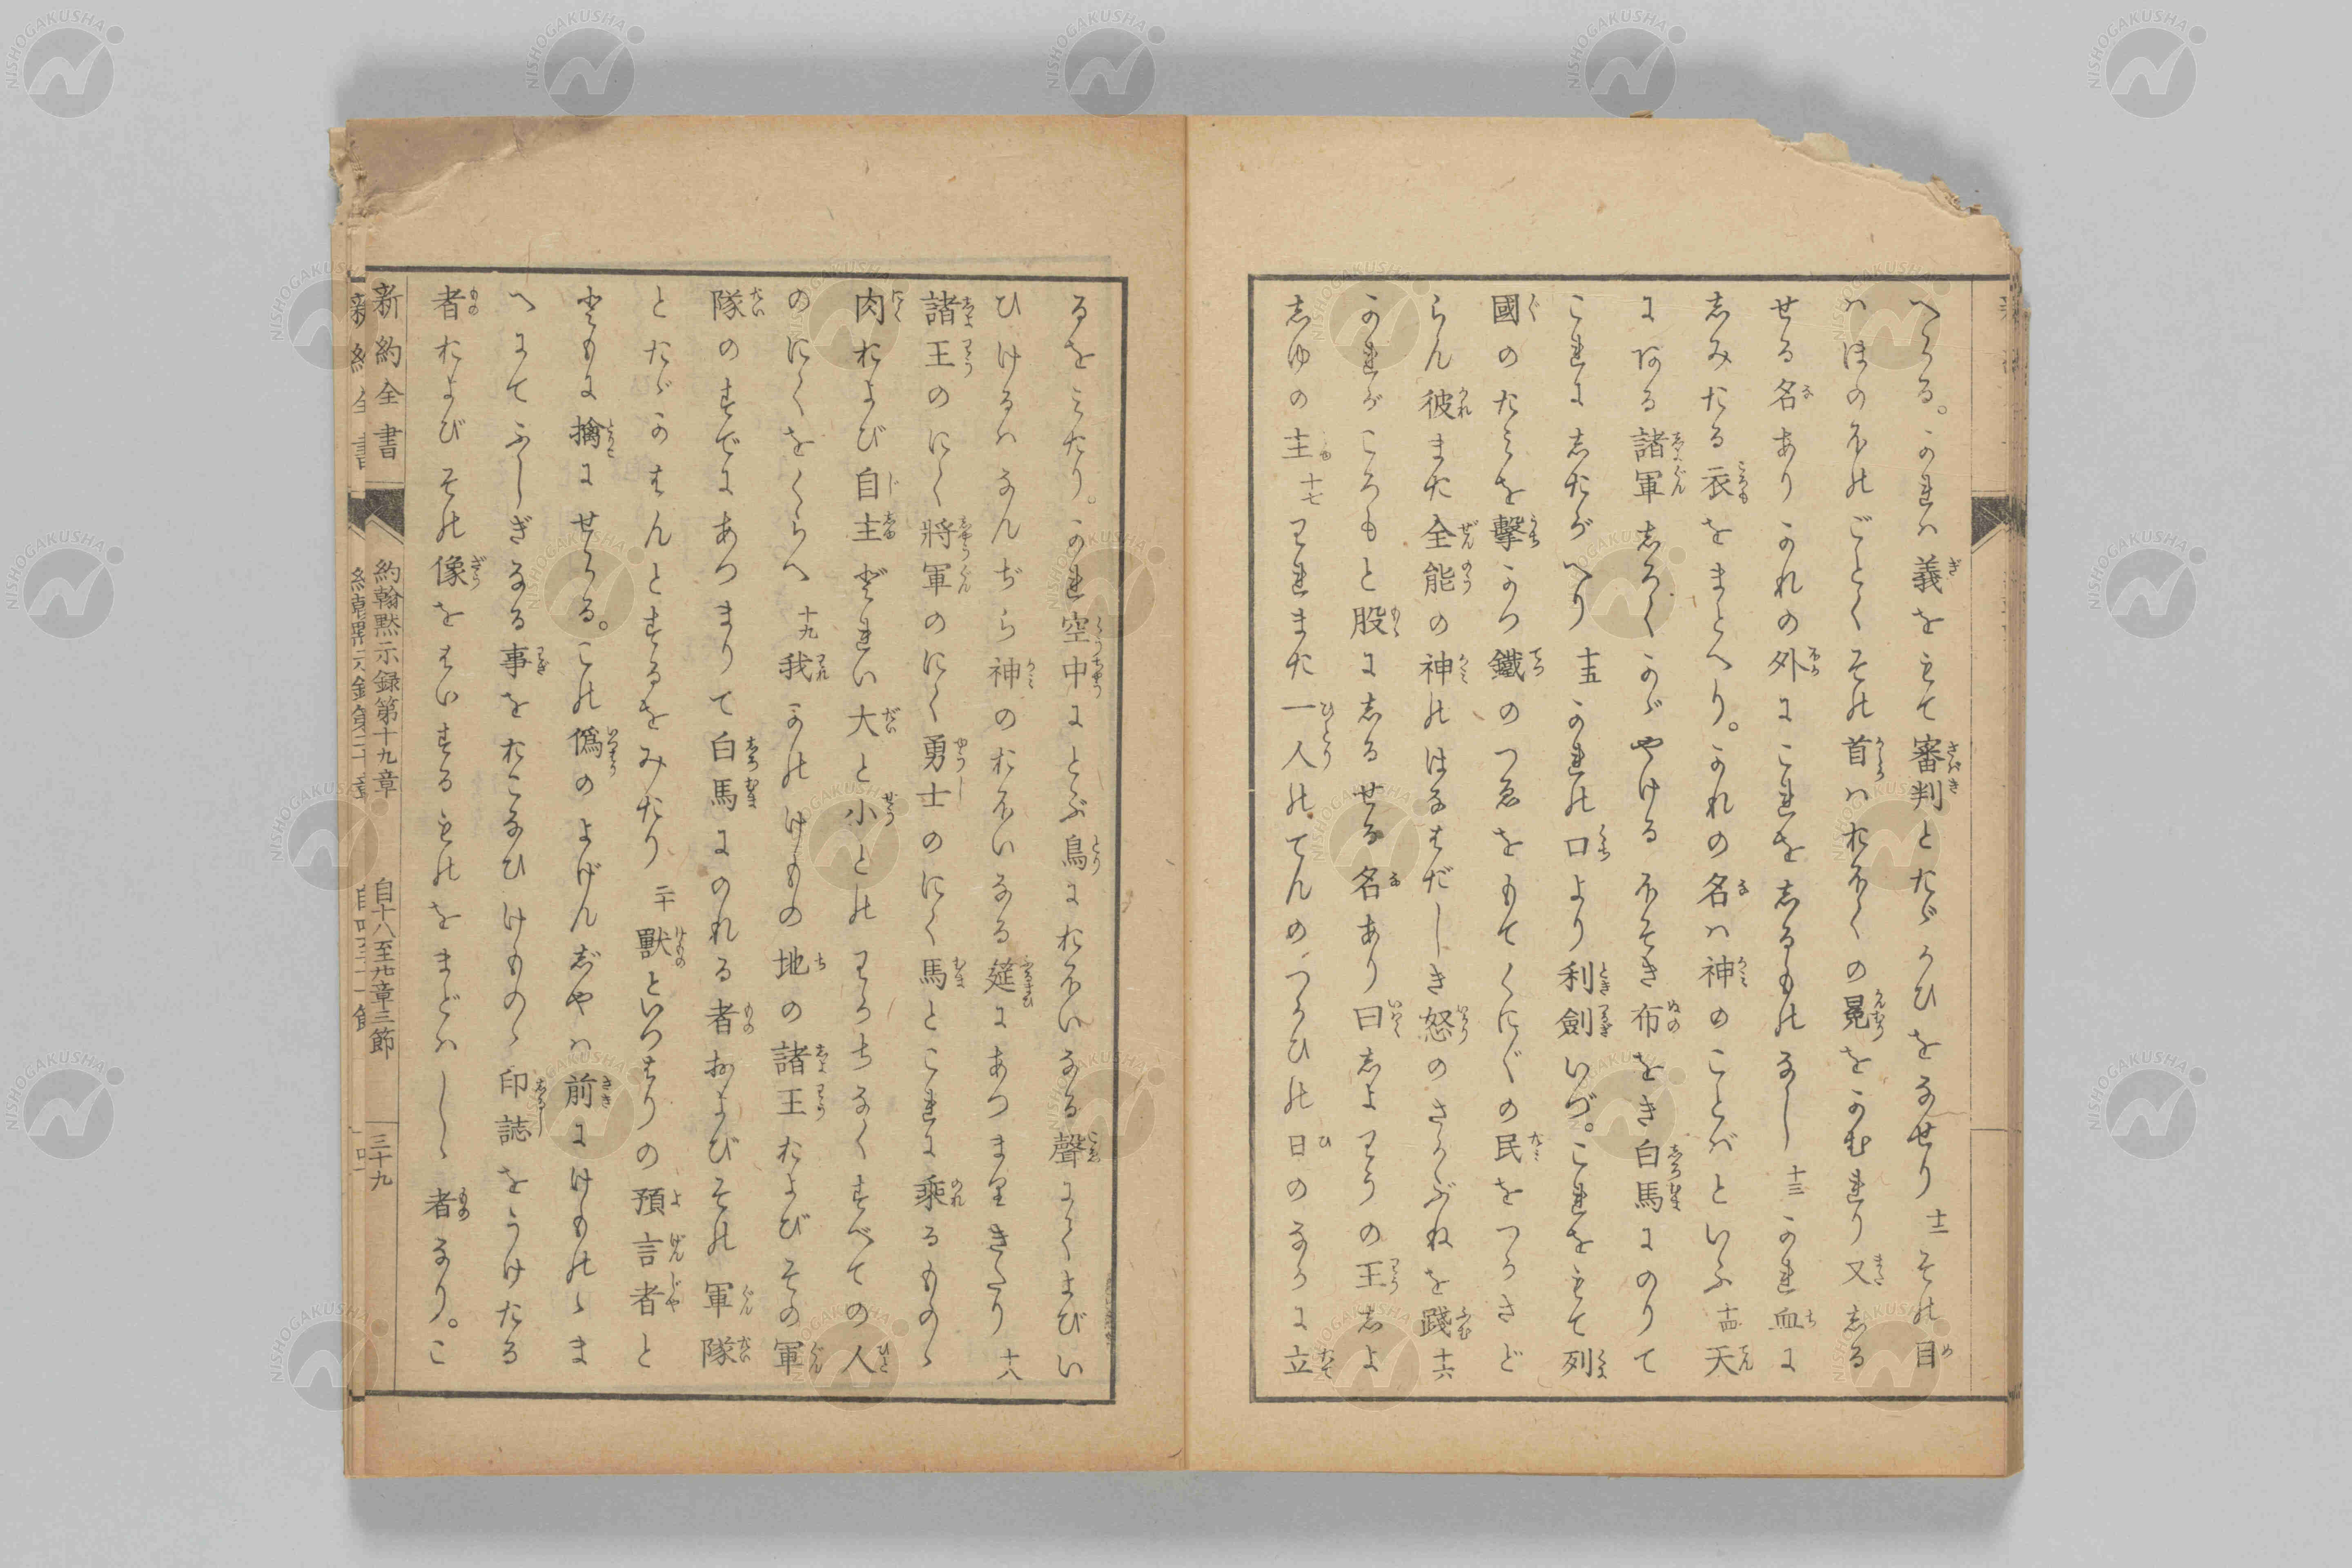 へらる。かれハ義をもて審判とたゝかひをなせり 十二 その目
ハほのほのごとくその首ハおほくの冕をかむれり又しる
せる名ありかれの外にこれをしるものなし 十三 かれ血に
しみたる衣をまとへり。かれの名ハ神のことばといふ 十四 天
にある諸軍しろくかゞやけるほそき布をき白馬にのりて
これにしたがへり 十五 かれの口より利劍いづ。これをもて列
國のたみを擊かつ鐵のつゑをもてくにぐの民をつかさど
らん彼また全能の神のはなはだしき怒のさかぶねを踐 十六
かれがころもと股にしるせる名あり曰しよわうの王しよ
しゆの主 十七 われまた一人のてんのつかひの日のなかに立
るをみたり。かれ空中にとぶ鳥におほいなる聲によくまびい
ひけるハなんぢら神のおほいなる筵にあつまりきたり 十八
諸王のにく將軍のにく勇士のにく馬とこれに乘るものゝ
肉および自主どれい大と小とのわかちなくすべての人
のにくをくらへ 十九 我かのけものの地の諸王およびその軍
隊のすでにあつまりて白馬にのれる者およびその軍隊
とたゝかはんとするをみたり 二十 獸といつはりの預言者と
ともに擒にせらる。この僞のよげんじやハ前にけものゝま
へにてふしぎなる事をおこなひけものゝ印誌をうけたる
者およびその像をはいするものをまどハしゝ者なり。こ
新約全書
約翰默示録第十九章
自十八至卄章三節
三十九